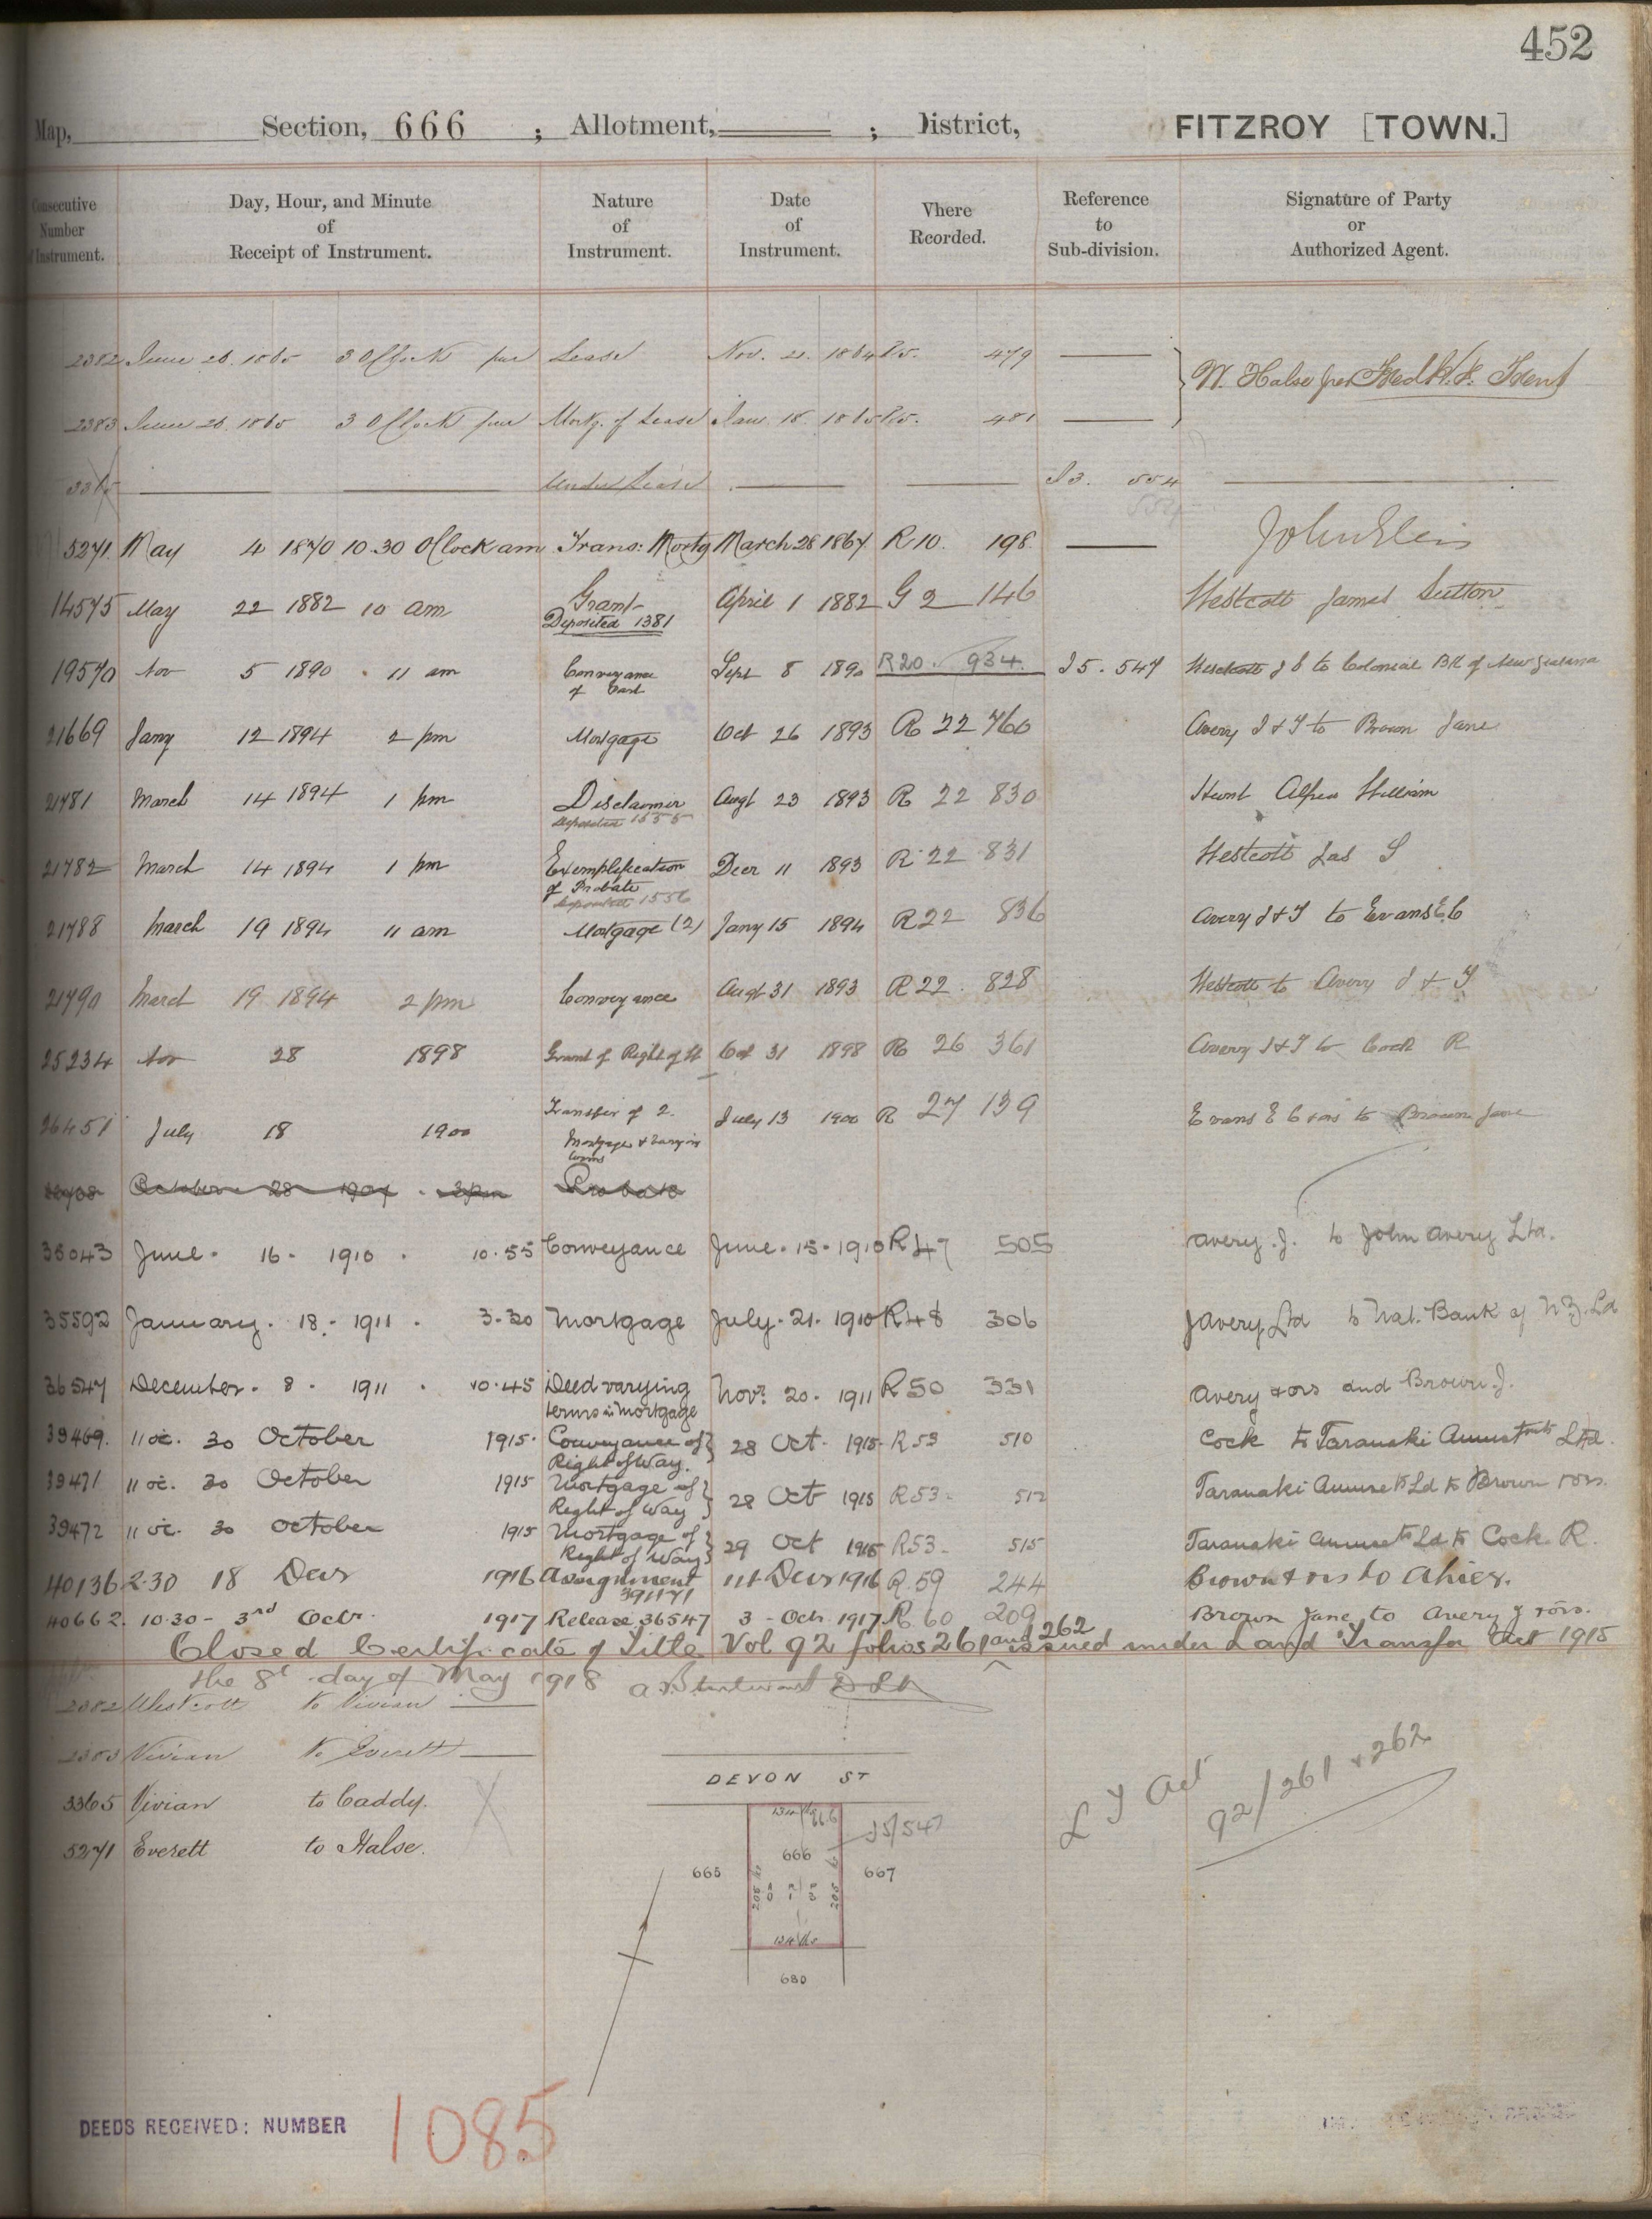 452
Map, Section, 666 ; Allotment, ; District, FITZROY [TOWN.]
Consecutive Number of Instrument.
Day, Hour, and Minute of Receipt of Instrument.
Nature of Instrument.
Date of Instrument.
Where Recorded.
Reference to Sub-division.
Signature of Party or Authorized Agent.
2382 June 26. 1865 3 OClock pm Lease Nov. 21. 1864 R5. 479
W. Halse per
2383 June 26. 1865 3 OClock pm Mortg. of Lease Jan. 18. 1865 R5. 481
3365 Under Lease I3. 554
554
5271. May 4 1870 10.30 OClock am Trans: Mortg March 28 1867 R10. 198
14575 May 22 1882 10 am Grant April 1 1882 G2 146 Westcott James Sutton
Deposited 1381
19570 Nov 5 1890 11 am Conveyance of Part Sept 8 1890 R20. 934. I5. 547 Westcott J S to Colonial Bk of New Zealand
21669 Jany 12 1894 2 pm Mortgage Oct 26 1893 R 22 760 Avery J & T to Brown Jane
21781 March 14 1894 1 pm Disclaimer Augt 23 1893 R 22 830 Hunt Alfred William
Deposited 1555
21782 March 14 1894 1 pm Exemplification of Probate Decr 11 1893 R 22 831 Westcott Jas S
Deposited 1556
21788 March 19 1894 11 am Mortgage (2) Jany 15 1894 R22 836 Avery J & T to Evans E C
21790 March 19 1894 2 pm Conveyance Augt 31 1893 R22. 828 Westcott to Avery J & T
25234 Nov 28 1898 Grant of Right of W Oct 31 1898 R 26 361 Avery J & T to Cock R
26451 July 18 1900 Transfer of 2. July 13 1900 R 27 139 Evans E C & ors to Brown Jane
Mortgages & varying terms
October 28 1907 . 3pm Probate
35043 June. 16. 1910 . 10.55 Conveyance June. 15. 1910 R47 505 Avery. J. to John Avery Ltd.
35592 January. 18. 1911 . 3.30 Mortgage July. 21. 1910 R48 306 J Avery Ltd to Nat. Bank of N.Z. Ld
36547 December. 8. 1911 . 10.45 Deed varying terms in mortgage Novr. 20. 1911 R50 331 Avery & ors and Brown J.
39469. 11 oc. 30 October 1915. Conveyance of Right of Way. 28 Oct. 1915. R53 510 Cock to Taranaki Amusments Ltd.
39471 11 oc. 30 October 1915 Mortgage of Right of Way 28 Oct 1915 R53. 512 Taranaki Amusets Ld to Brown & ors.
39472 11 oc. 30 October 1915 Mortgage of Right of Way 29 Oct 1915 R53. 515 Taranaki Amusets Ld to Cock R.
40136 2.30 18 Decr 1916 Assignment 11th Decr 1916 R.59 244 Brown & ors to Ahier.
40662. 10.30 - 3rd Octr. 1917 Release 36547 3 - Octr. 1917 R. 60 209 Brown Jane to Avery J & ors.
Closed Certificate of Title Vol 92 folios 261 and 262 issued under Land Transfer Act 1915
the 8th day of May 1918
2382 Westcott to Vivian
2383 Vivian to Everett
3365 Vivian to Caddy.
5271 Everett to Halse.
DEVON ST
665
666
667
680
I5/547
L T Act
92/261 & 262
DEEDS RECEIVED: NUMBER 1085